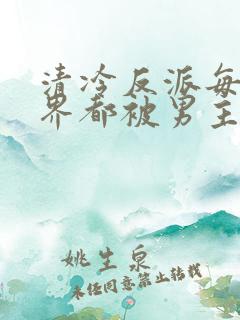 清冷反派每
界都被男主
姚生泉
未经同意禁止转载